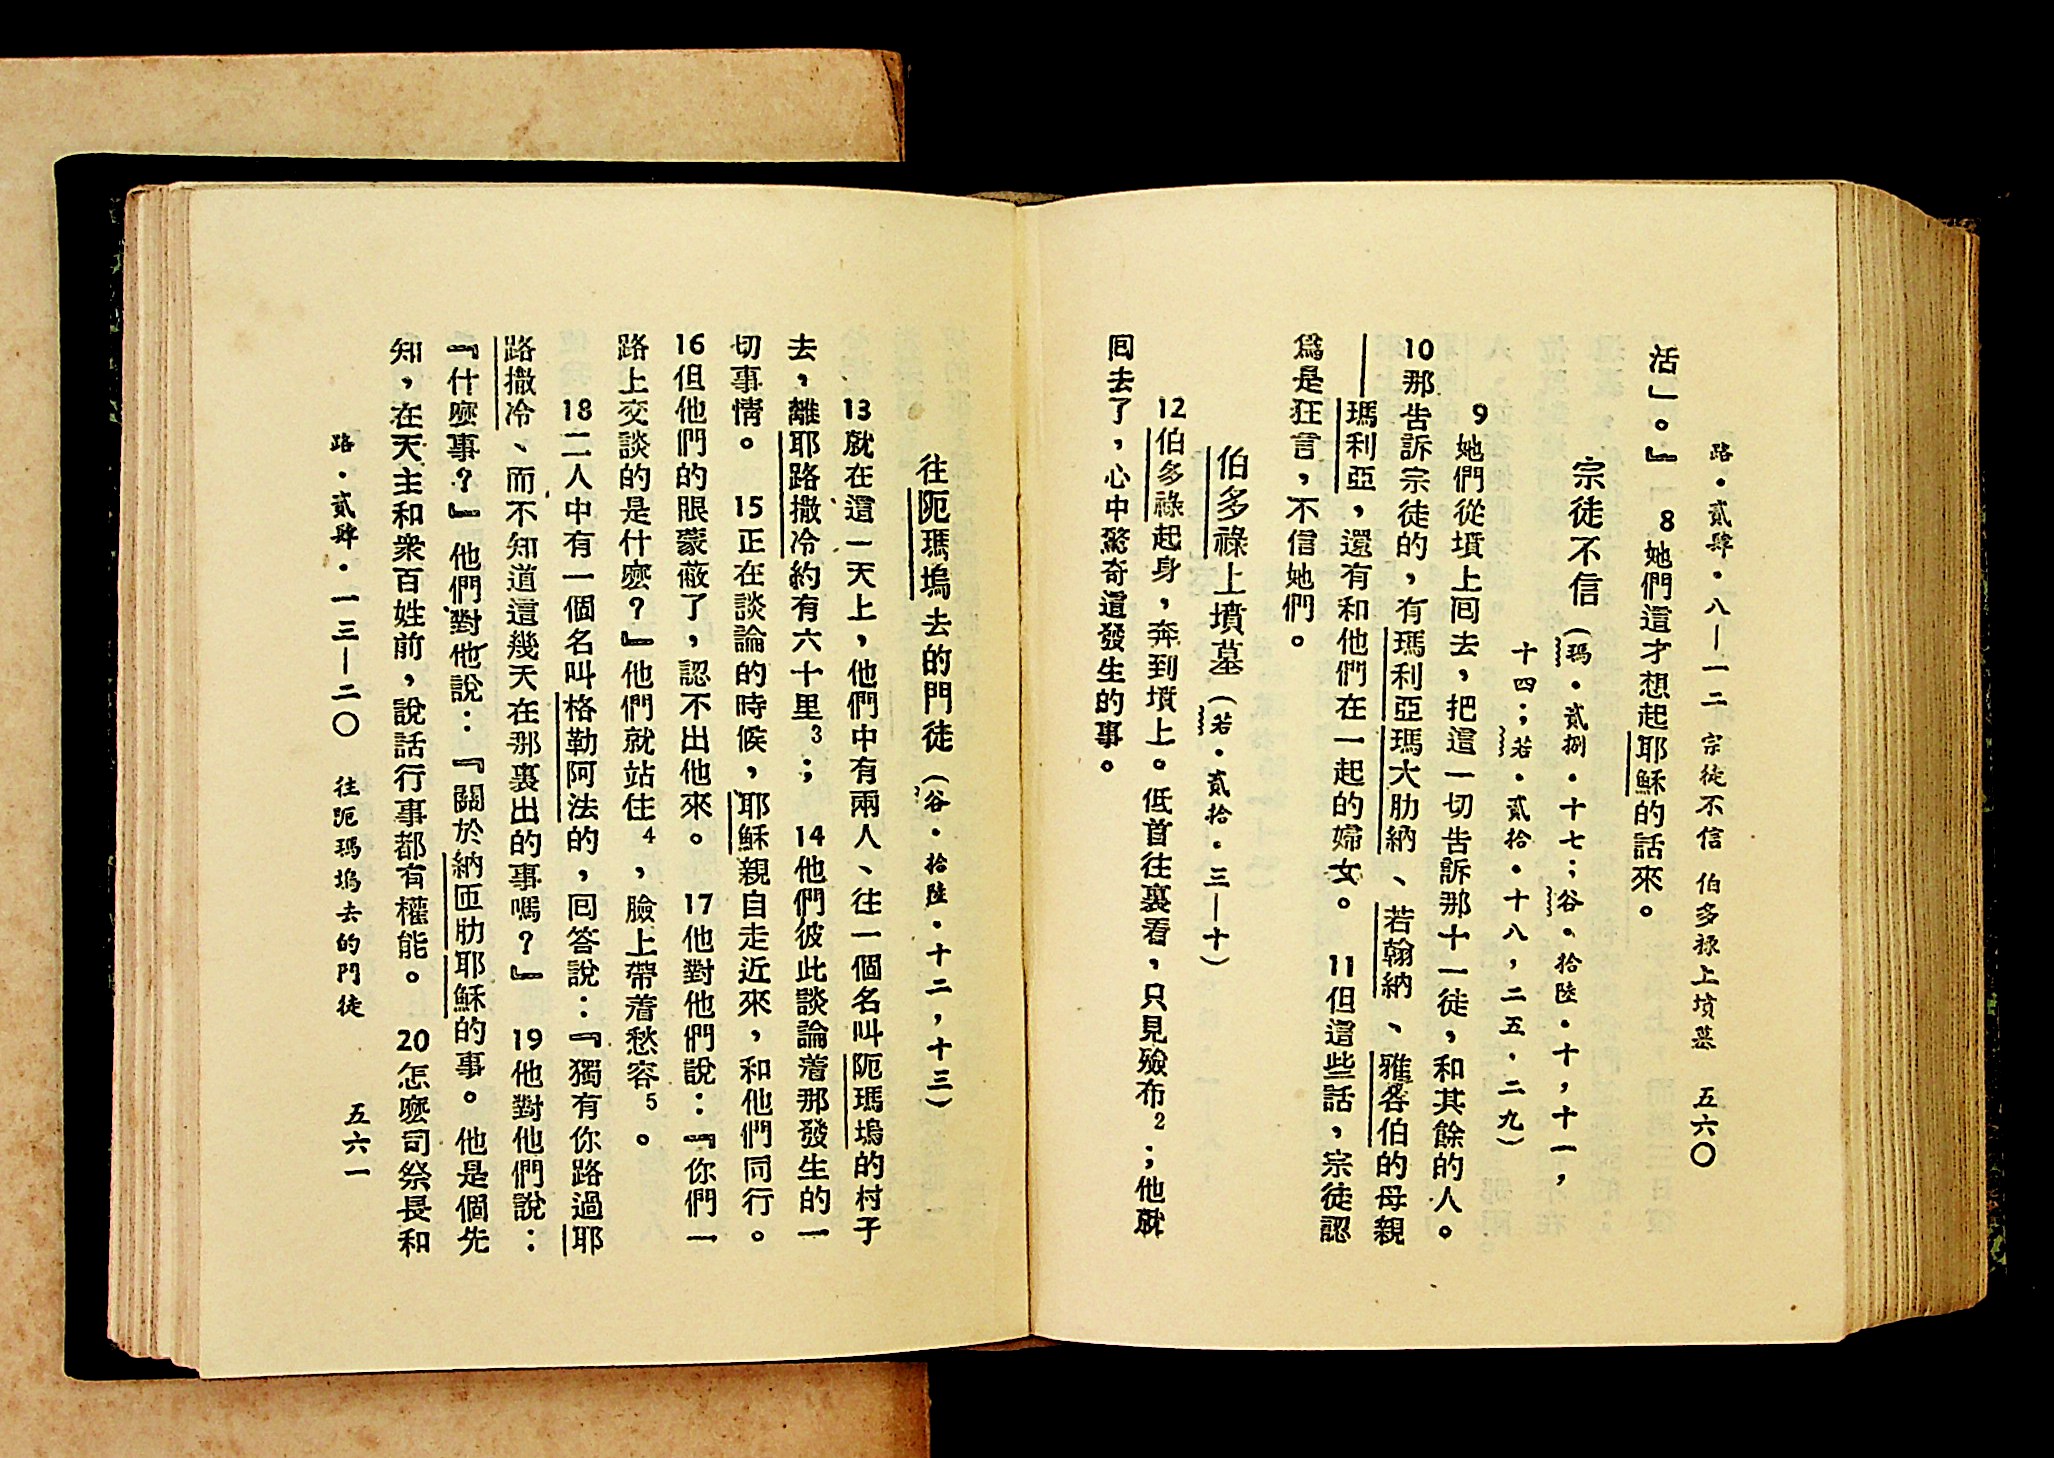 路·貳肆·八—一二　宗徒不信　伯多祿上墳墓　五六〇
活」。』　8她們這才想起耶穌的話來。
宗徒不信（瑪·貳捌·十七；谷·拾陸·十，十一，
十四；若·貳拾·十八，二五·二九）
9她們從墳上囘去，把這一切告訴那十一徒，和其餘的人。
10那告訴宗徒的，有瑪利亞瑪大肋納、若翰納、雅各伯的母親
瑪利亞，還有和他們在一起的婦女。　11但這些話，宗徒認
爲是狂言，不信她們。
伯多祿上墳墓（若·貳拾·三—十）
12伯多祿起身，奔到墳上。低首往裏看，只見殮布2；他就
囘去了，心中驚奇這發生的事。
往阨瑪塢去的門徒（谷·拾陸·十二，十三）
13就在這一天上，他們中有兩人、往一個名叫阨瑪塢的村子
去，離耶路撒冷約有六十里3；　14他們彼此談論着那發生的一
切事情。　15正在談論的時候，耶穌親自走近來，和他們同行。
16但他們的眼蒙蔽了，認不出他來。　17他對他們說：『你們一
路上交談的是什麼？』他們就站住4，臉上帶着愁容5。
18二人中有一個名叫格勒阿法的，囘答說：『獨有你路過耶
路撒冷、而不知道這幾天在那裏出的事嗎？』　19他對他們說：
『什麼事？』他們對他說：『關於納匝肋耶穌的事。他是個先
知，在天主和衆百姓前，說話行事都有權能。　20怎麼司祭長和
路·貳肆·一三—二〇　往阨瑪塢去的門徒　五六一